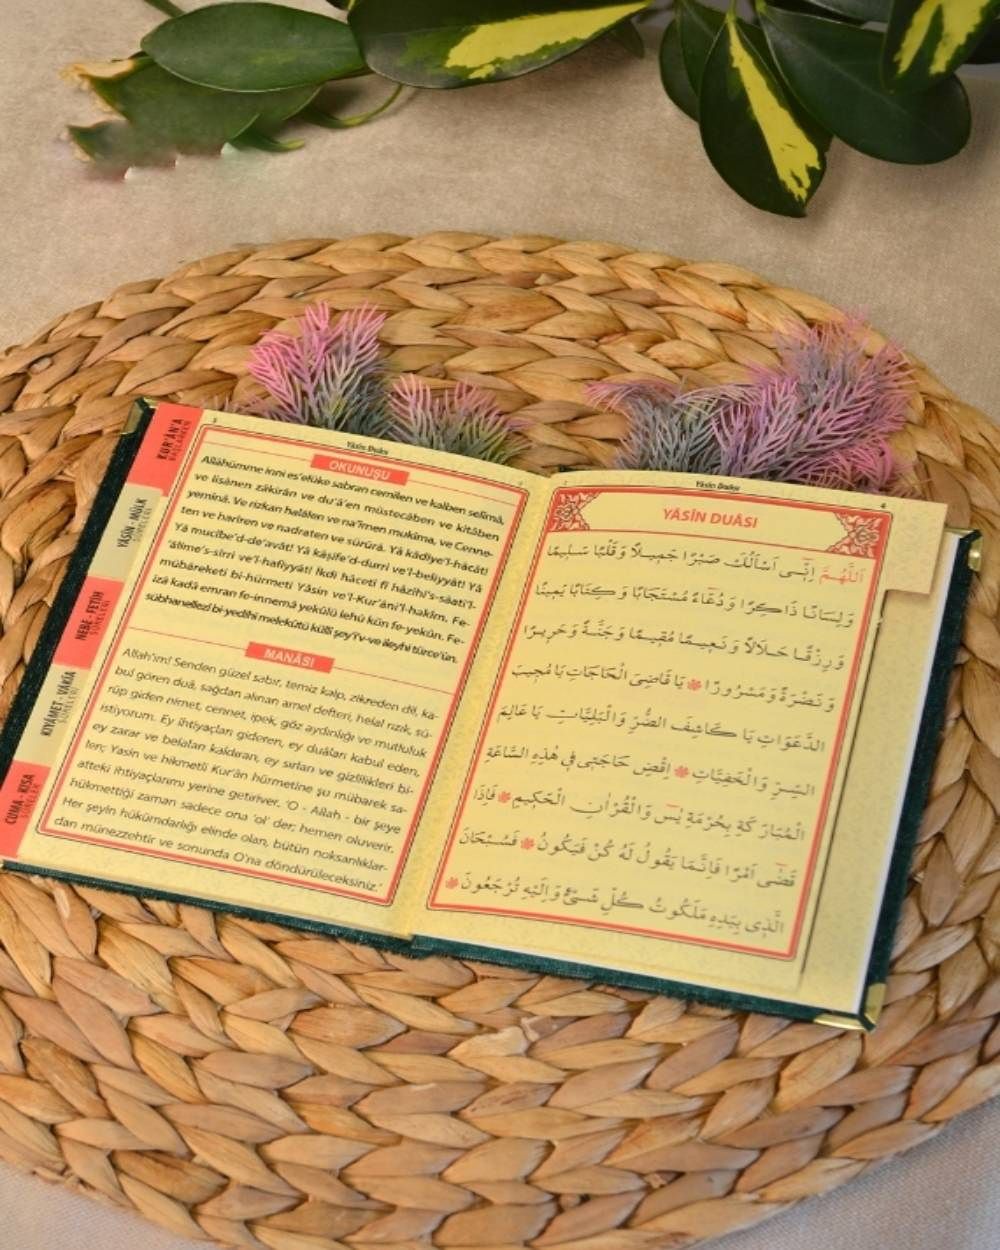 KUR'ÂN'A
BAŞLARKEN
YÂSÎN - MÜLK
SÛRELERİ
NEBE - FETİH
SÛRELERİ
KIYÂMET - VÂKIA
SÛRELERİ
CUMA - KISA
SÛRELER
Yâsîn Duâsı
OKUNUŞU
Allâhümme inni es'elüke sabran cemîlen ve kalben selîmâ,
ve lisânen zâkirân ve du'â'en müstecâben ve kitâben
yemînâ. Ve rizkan halâlen ve na'îmen mukîma, ve Cenne-
ten ve harîren ve nadraten ve sürûrâ. Yâ kâdiye'l-hâcât!
Yâ mucîbe'd-de'avât! Yâ kâşife'd-durri ve'l-beliyyât! Yâ
'âlime's-sirri ve'l-hafiyyât! İkdî hâcetî fî hâzihi's-sâati'l-
mübâreketi bi-hürmeti Yâsîn ve'l-Kur'âni'l-hakîm. Fe-
izâ kadâ emran fe-innemâ yekûlü lehû kün fe-yekûn. Fe-
sübhanellezî bi-yedihî melekûtü külli şey'iv-ve ileyhi türce'ûn.
MANÂSI
Allah'ım! Senden güzel sabır, temiz kalp, zikreden dil, ka-
bul gören duâ, sağdan alınan amel defteri, helal rızık, sü-
rüp giden nimet, cennet, ipek, göz aydınlığı ve mutluluk
istiyorum. Ey ihtiyaçları gideren, ey duâları kabul eden,
ey zarar ve belaları kaldıran, ey sırları ve gizlilikleri bi-
len; Yasin ve hikmetli Kur'ân hürmetine şu mübarek sa-
atteki ihtiyaçlarımı yerine getiriver. 'O - Allah - bir şeye
hükmettiği zaman sadece ona 'ol' der; hemen oluverir.
Her şeyin hükümdarlığı elinde olan, bütün noksanlıklar-
dan münezzehtir ve sonunda O'na döndürüleceksiniz.'
Yâsîn Duâsı
YÂSÎN DUÂSI
اَللّٰهُمَّ اِنّ۪ى اَسْاَلُكَ صَبْرًا جَم۪يلًا وَ قَلْبًا سَل۪يمًا
وَ لِسَانًا ذَاكِرًا وَ دُعَاءً مُسْتَجَابًا وَ كِتَابًا يَم۪ينًا
وَ رِزْقًا حَلَالًا وَ نَع۪يمًا مُق۪يمًا وَ جَنَّةً وَ حَر۪يرًا
وَ نَضْرَةً وَ مَسْرُورًا ❋ يَا قَاضِىَ الْحَاجَاتِ يَا مُج۪يبَ
الدَّعَوَاتِ يَا كَاشِفَ الضُّرِّ وَالْبَلِيَّاتِ يَا عَالِمَ
السِّرِّ وَالْخَفِيَّاتِ ❋ اِقْضِ حَاجَت۪ى ف۪ى هٰذِهِ السَّاعَةِ
الْمُبَارَكَةِ بِحُرْمَةِ يٰسٓ وَالْقُرْاٰنِ الْحَك۪يمِ ❋ فَاِذَا
قَضٰى اَمْرًا فَاِنَّمَا يَقُولُ لَهُ كُنْ فَيَكُونُ ❋ فَسُبْحَانَ
الَّذ۪ى بِيَدِهِ مَلَكُوتُ كُلِّ شَىْءٍ وَ اِلَيْهِ تُرْجَعُونَ ❋